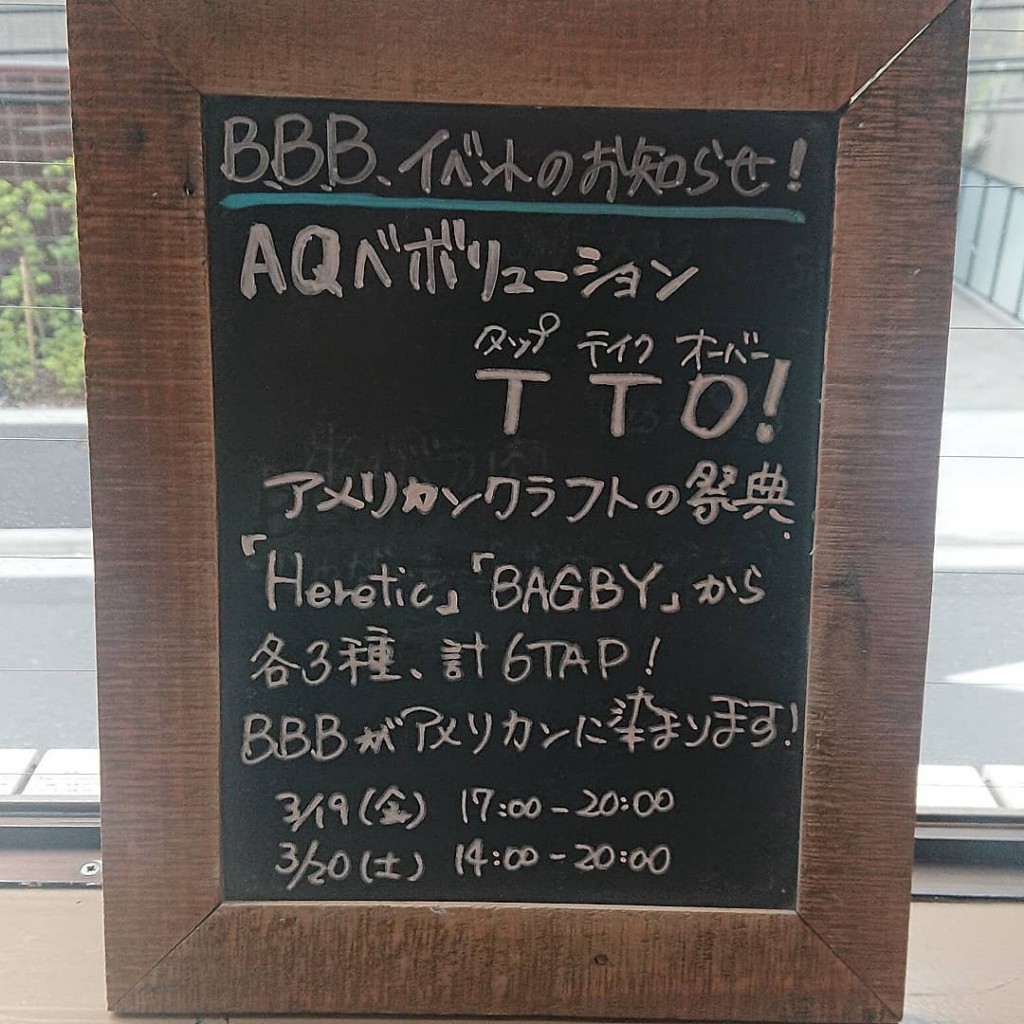 B.B.B.イベントのお知らせ!
AQベボリューション
タップ テイク オーバー
T T O!
アメリカンクラフトの祭典.
「Heretic」「BAGBY」から
各3種、計6TAP!
B.B.BがアメリカンIに染まります!
3/19(金) 17:00-20:00
3/20(土) 14:00-20:00